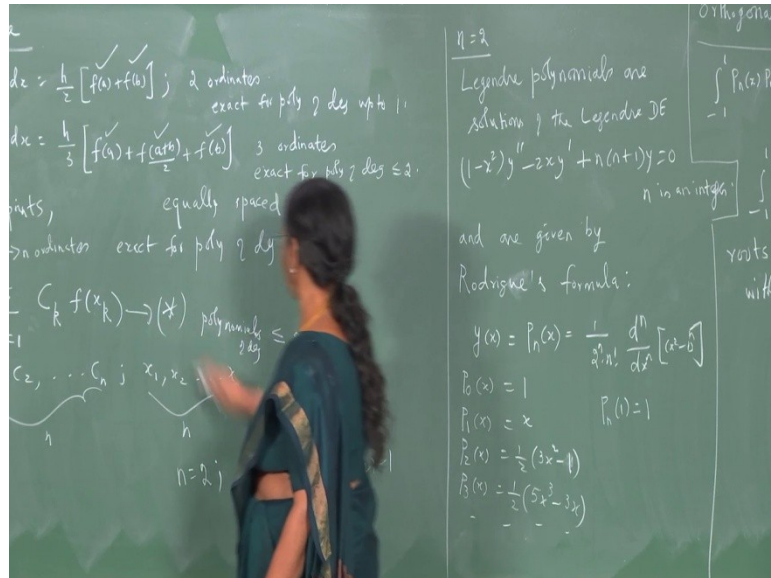 dx = h/2 [f(a)+f(b)] ; 2 ordinates
exact for poly of deg upto 1.
dx = h/3 [f(a) + f(a+b)/2 + f(b)] 3 ordinates
exact for poly of deg ≤ 2.
equally spaced
n ordinates exact for poly of deg
C_k f(x_k) → (*) polynomials
of deg ≤
C_2, ... C_n ; x_1, x_2
n n
n=2;
n=2
Legendre polynomials are
solution of the Legendre DE
(1-x²)y'' - 2xy' + n(n+1)y = 0
n is an integer.
and are given by
Rodrigue's formula:
y(x) = P_n(x) = 1/(2^n n!) d^n/dx^n [(x²-1)^n]
P_0(x) = 1
P_1(x) = x P_n(1) = 1
P_2(x) = 1/2 (3x²-1)
P_3(x) = 1/2 (5x³-3x)
- - - -
∫_{-1}^{1} P_n(x) P
∫_{-1}^{1}
roots